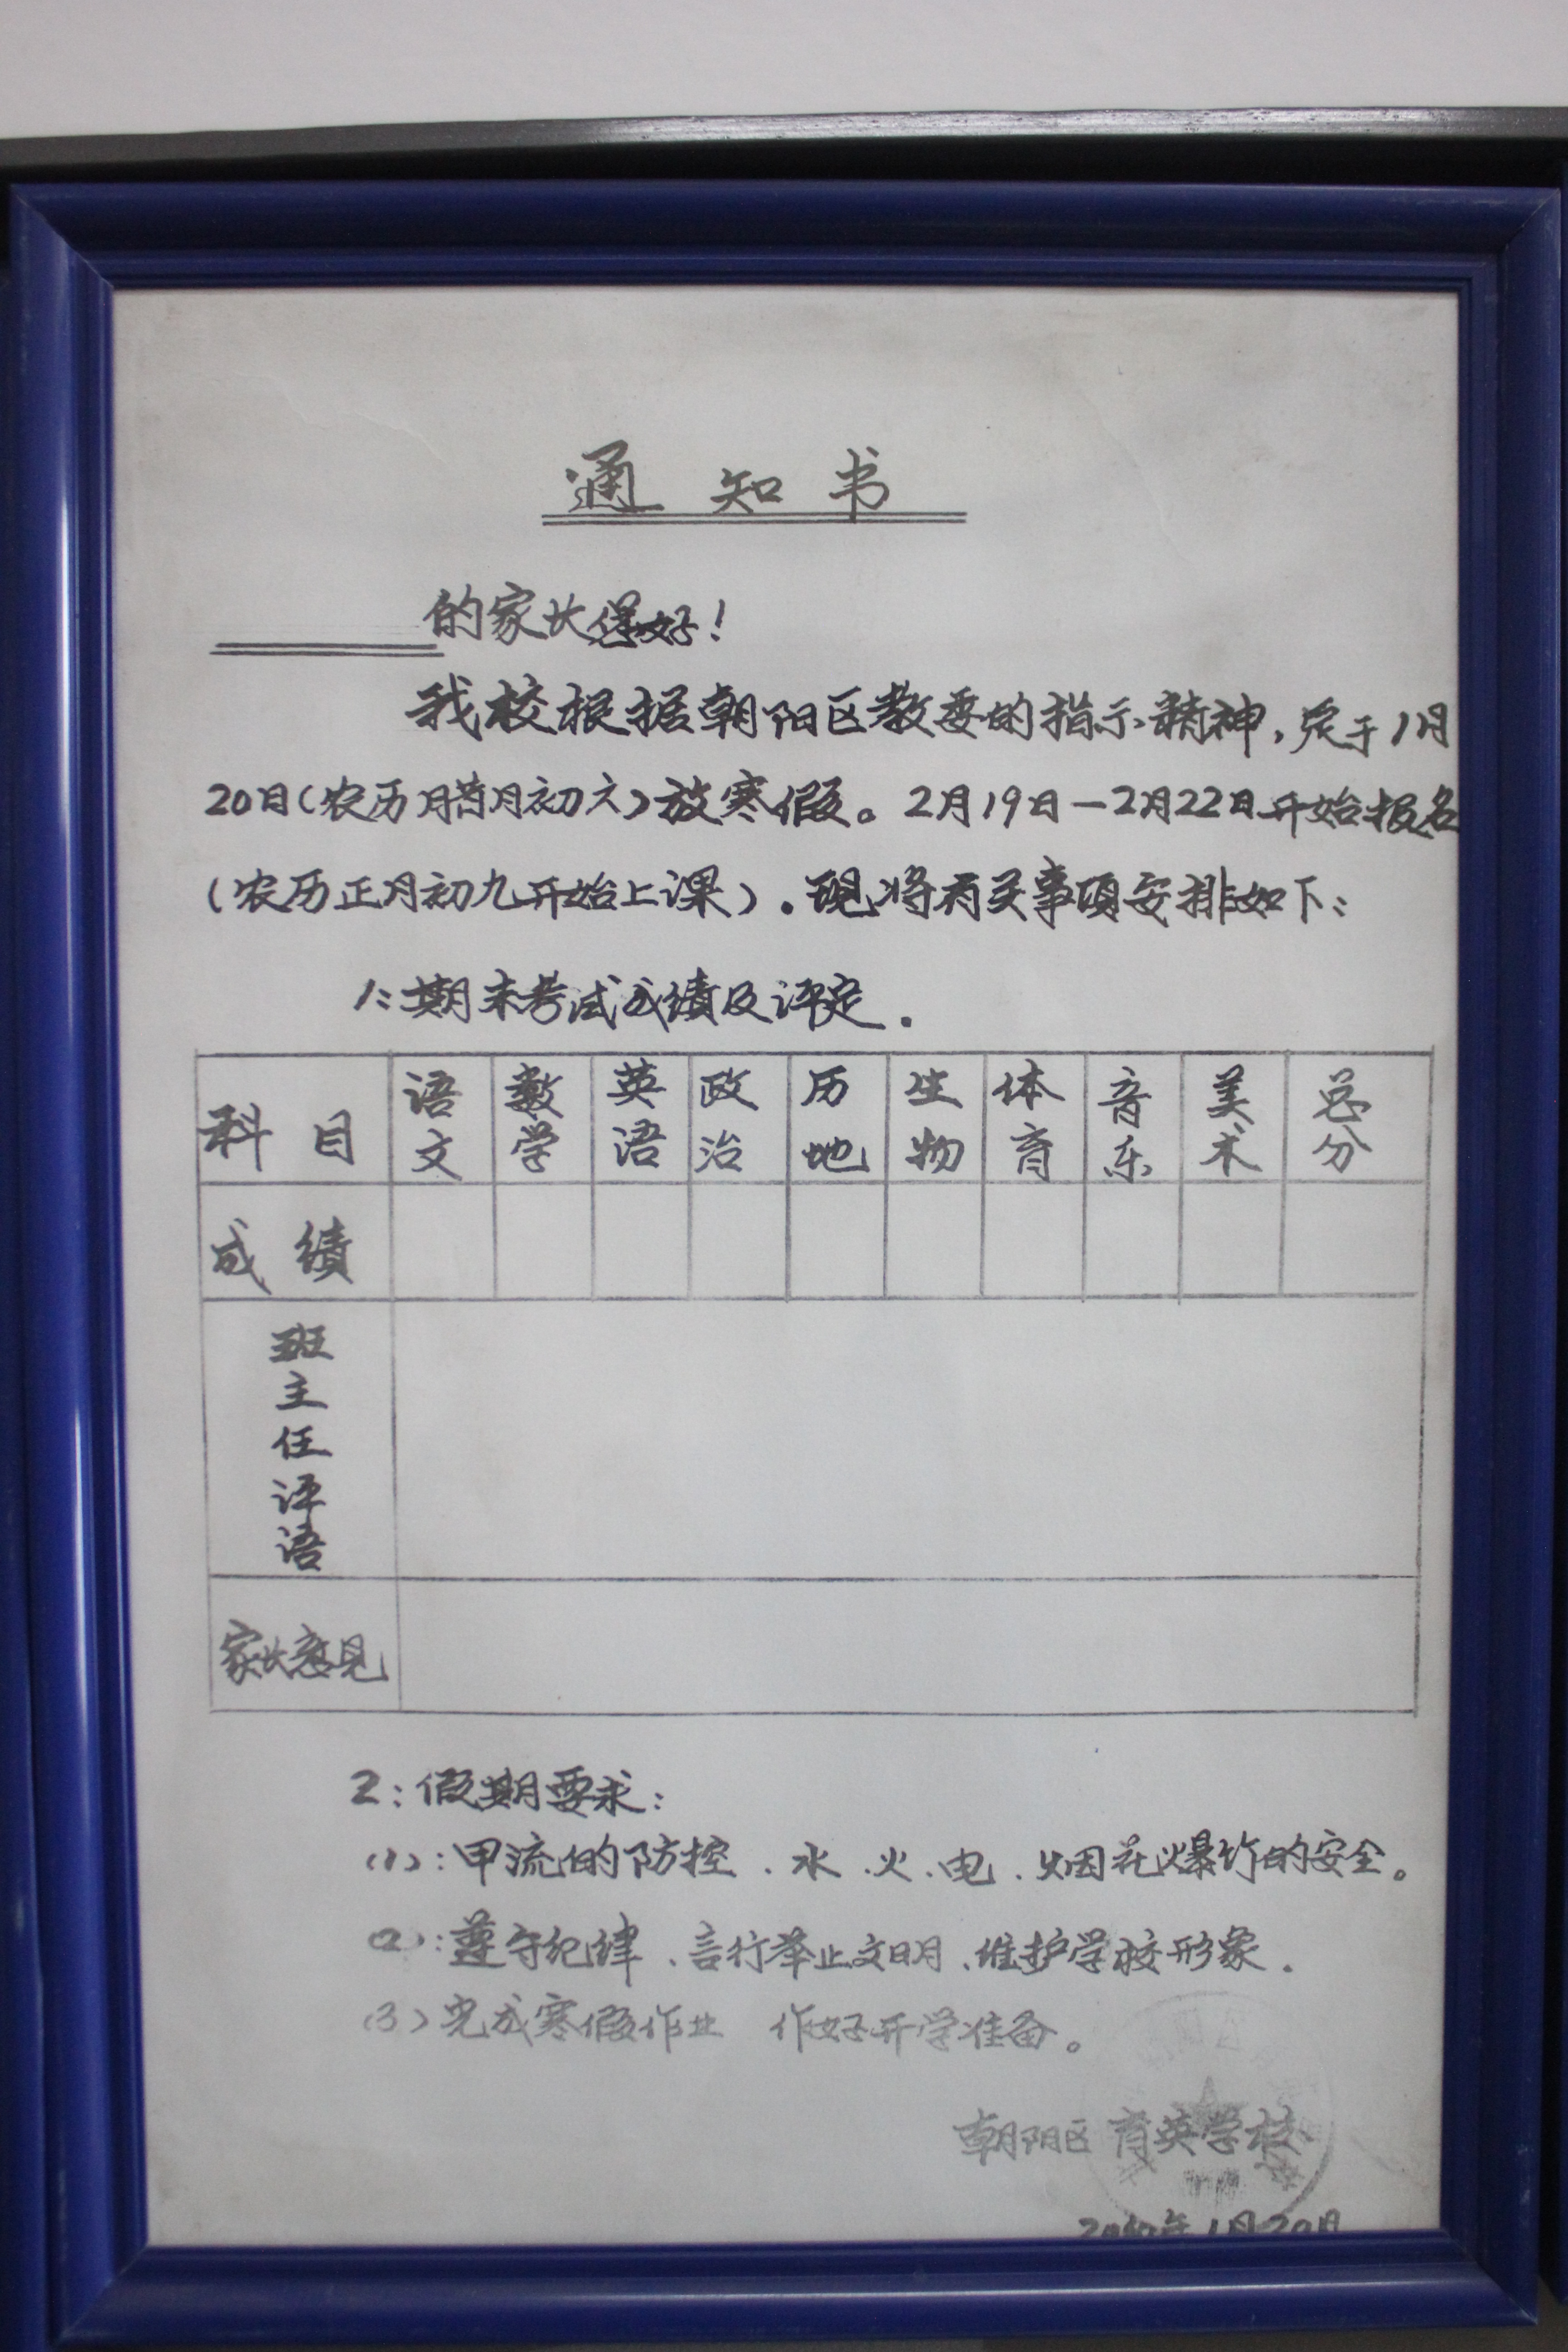 通知书
的家长您好！
我校根据朝阳区教委的指示精神，定于1月
20日（农历腊月初六）放寒假。2月19日—2月22日开始报名
（农历正月初九开始上课）。现将有关事项安排如下：
1：期末考试成绩及评定．
科目 语文 数学 英语 政治 历地 生物 体育 音乐 美术 总分
成绩
班主任评语
家长意见
2：假期要求：
(1)：甲流的防控、水、火、电、烟花爆竹的安全。
(2)：遵守纪律、言行举止文明、维护学校形象．
(3)完成寒假作业 作好开学准备。
朝阳区育英学校
2010年1月20日